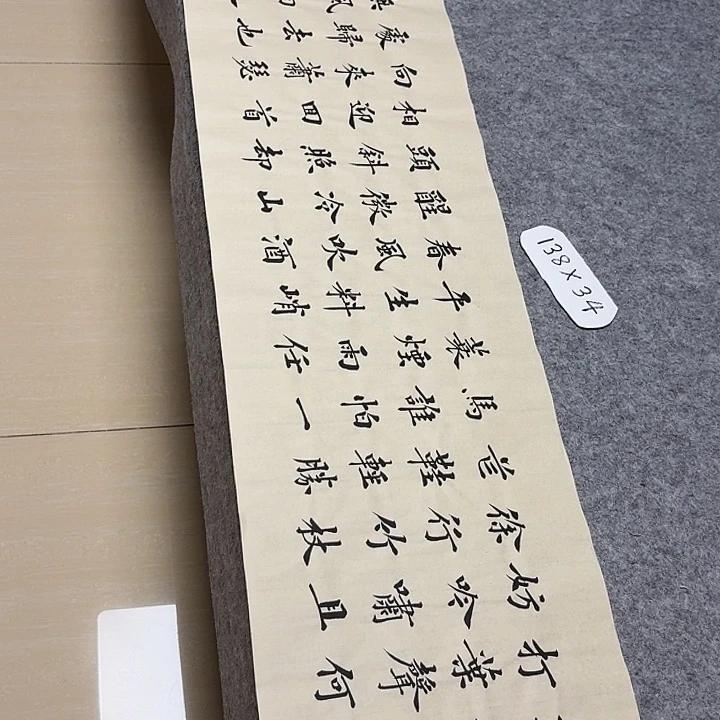 打葉聲何
妨吟嘯且
徐行竹杖
芒鞋輕勝
馬誰怕一
蓑煙雨任
平生料峭
春風吹酒
醒微冷山
頭斜照却
相迎回首
向來蕭瑟
處歸去也
138×34